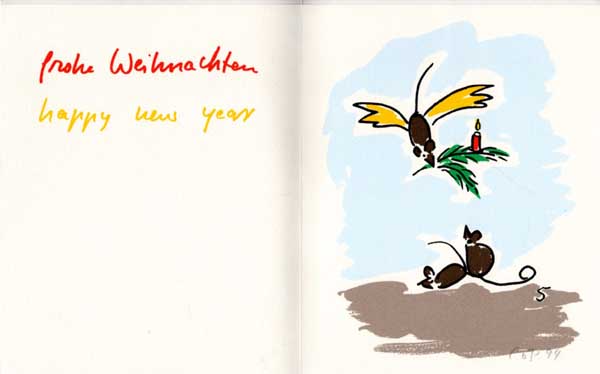 frohe Weihnachten
happy new year
5